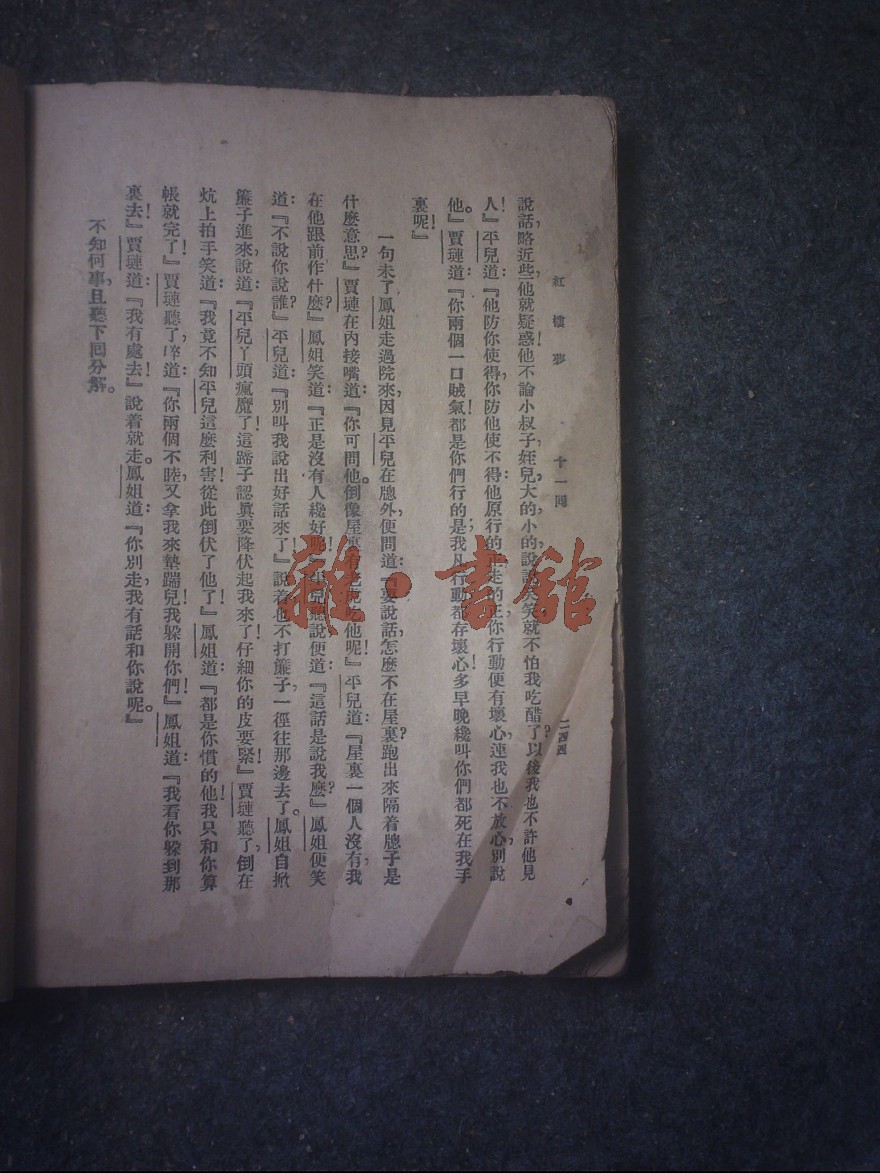 紅樓夢 十一回 二四四
說話,略近些,他就疑惑!他不論小叔子,姪兒,大的,小的,說說笑笑,就不怕我吃醋了?以後我也不許他見
人!』平兒道:『他防你使得,你防他使不得:他原行的正,走的正;你行動便有壞心,連我也不放心,別說
他。』賈璉道:『你兩個一口賊氣!都是你們行的是,我凡行動都存壞心!多早晚纔叫你們都死在我手
裏呢!』
一句未了,鳳姐走過院來,因見平兒在牕外,便問道:『要說話,怎麼不在屋裏,跑出來隔着牕子,是
什麼意思?』賈璉在內接嘴道:『你可問他。倒像屋裏有老虎吃他呢!』平兒道:『屋裏一個人沒有,我
在他跟前作什麼?』鳳姐笑道:『正是沒有人纔好呢!』平兒聽說,便道:『這話是說我麼?』鳳姐便笑
道:『不說你說誰?』平兒道:『別叫我說出好話來了!』說着,也不打簾子,一徑往那邊去了。鳳姐自掀
簾子進來,說道:『平兒丫頭瘋魔了!這蹄子認眞要降伏起我來了!仔細你的皮要緊!』賈璉聽了,倒在
炕上拍手笑道:『我竟不知平兒這麼利害!從此倒伏了他了!』鳳姐道:『都是你慣的他!我只和你算
帳就完了!』賈璉聽了,啐道:『你兩個不睦,又拿我來墊踹兒!我躱開你們!』鳳姐道:『我看你躱到那
裏去!』賈璉道:『我有處去!』說着就走。鳳姐道:『你別走,我有話和你說呢。』
不知何事,且聽下回分解。
雜·書館